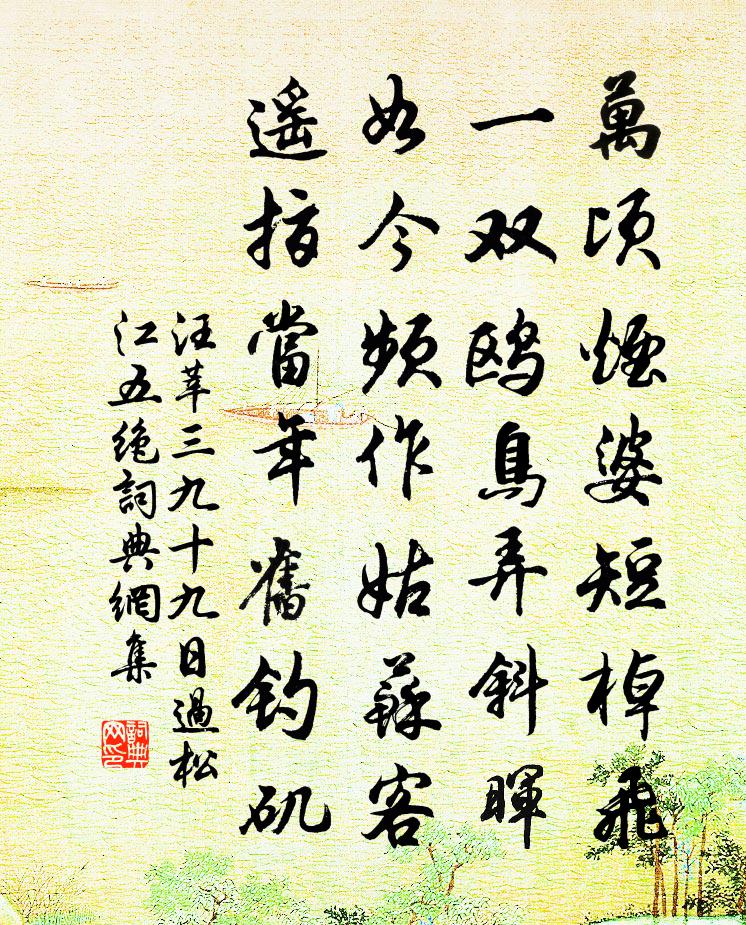 萬頃煙婆短棹飛
一双鸥鳥弄斜暉
如今頻作姑蘇客
遥指當年舊钓矶
汪莘三九十九日過松
江五绝詞典網集
詞典
网印